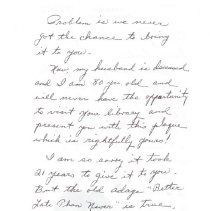 Problem is we never
got the chance to bring
it to you.
Now, my husband is deceased
and I am 80 yrs old and
will never have the opportunity
to visit your library and
present you with this plaque
which is rightfully yours!
I am so sorry it took
21 years to give it to you.
But the old adage "Better
Late Than Never" is true.